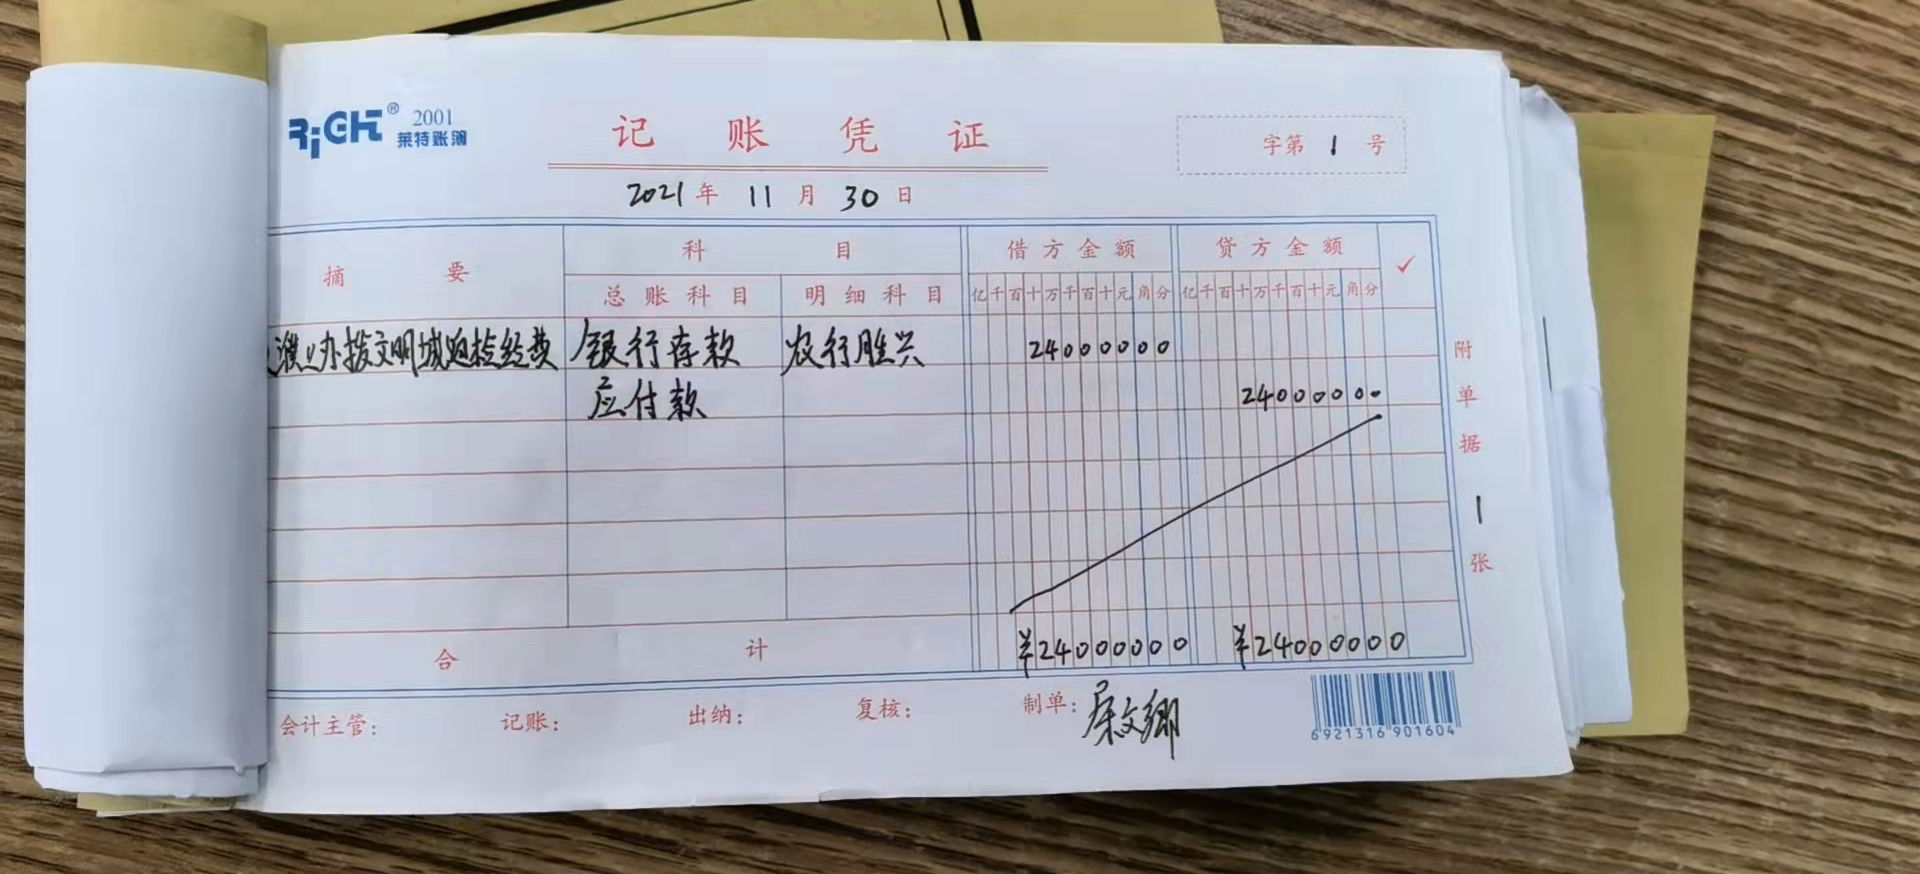 RiGHT® 2001
莱特账簿
记账凭证
字第 1 号
2021 年 11 月 30 日
摘要 科目 借方金额 贷方金额 ✓
总账科目 明细科目 亿千百十万千百十元角分 亿千百十万千百十元角分
办拨文明城迎检经费 银行存款 农行胜兴 24000000
应付款 24000000
合计 ¥24000000 ¥24000000
附单据 1 张
会计主管: 记账: 出纳: 复核: 制单:
6921316901604